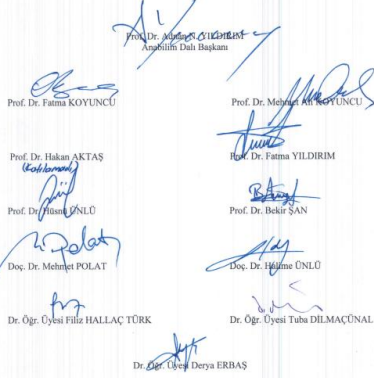 Prof. Dr. Adnan N. YILDIRIM
Anabilim Dalı Başkanı
Prof. Dr. Fatma KOYUNCU
Prof. Dr. Mehmet Ali KOYUNCU
Prof. Dr. Hakan AKTAŞ
(Katılamadı)
Prof. Dr. Fatma YILDIRIM
Prof. Dr. Hüsnü ÜNLÜ
Prof. Dr. Bekir ŞAN
Doç. Dr. Mehmet POLAT
Doç. Dr. Halime ÜNLÜ
Dr. Öğr. Üyesi Filiz HALLAÇ TÜRK
Dr. Öğr. Üyesi Tuba DİLMAÇÜNAL
Dr. Öğr. Üyesi Derya ERBAŞ